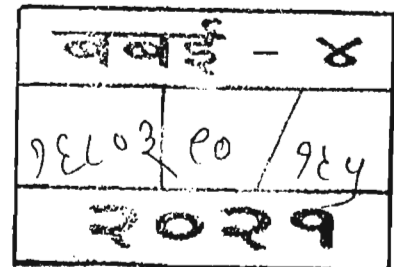 बबई - ४
१६८०३ ९० / १६५
२०२१